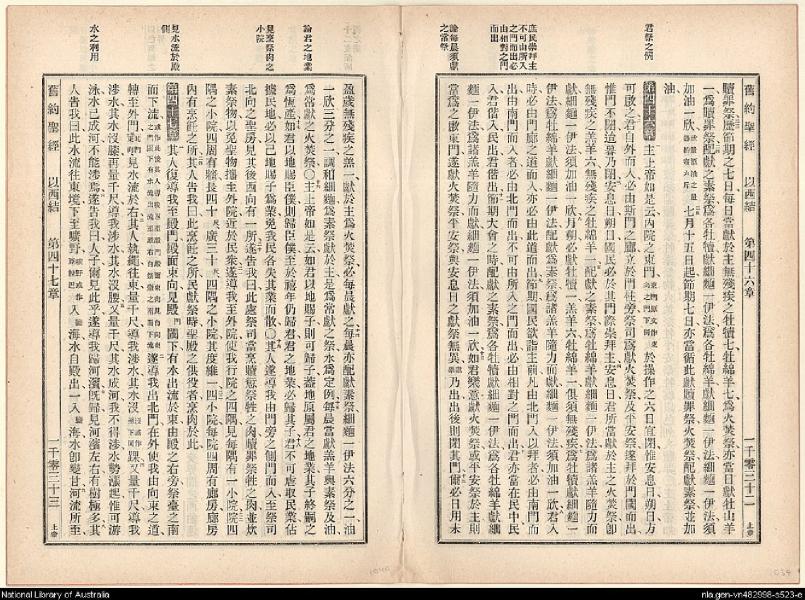 舊約聖經　以西結　第四十六章　二千零三十二　上帝
君祭之例
庶民崇拜主不可由所入之門而出必由相對之門而出
論每晨須獻之常祭
贖罪祭歷節期之七日每日當獻於主無殘疾之牡犢七牡綿羊七爲火焚祭亦當日獻牡山羊
一爲贖罪祭配獻之素祭爲各牡犢獻細麵一伊法爲各牡綿羊獻細麵一伊法細麵一伊法須
加油一欣七月十五日起節期七日亦當循此獻贖罪祭火焚祭配獻素祭並加
油
第四十六章 主上帝如是云內院之東門於操作之六日宜閉惟安息日朔日方
可啟之君自外而入必由斯門之廊立於門柱旁祭司爲獻火焚祭及平安祭遂拜於門閾而出
惟門不閉這暮乃閉安息日朔日國民必於其門際崇拜主安息日君所當獻於主之火焚祭卽
無殘疾之羔羊六無殘疾之牡綿羊一配獻之素祭爲牡綿羊獻細麵一伊法爲諸羔羊隨力而
獻細麵一伊法須加油一欣月朔必獻牡犢一羔羊六牡綿羊一俱須無殘疾爲牡犢獻細麵一
伊法爲牡綿羊獻細麵一伊法配獻爲素祭爲諸羔羊隨力而獻細麵一伊法須加油一欣君入
時必由門廊之道而入亦必由此道而出節期國民欲詣主前凡由北門入以拜者必由南門而
出由南門而入者必由北門而出不可由所入之門而出必由相對之門而出君亦當在民中民
入君偕入民出君偕出節期大會之時配獻之素祭爲各牡犢獻細麵一伊法爲各牡綿羊獻細
麵一伊法爲諸羔羊隨力而獻細麵一伊法須加油一欣如君樂意獻火焚祭或平安祭於主則
當爲之啟東門遂獻火焚祭平安祭與安息日之獻祭無異乃出出後則閉其門爾必日用未
論君之地業
見烹祭肉之小院
見水流於殿側
水之利用
盈歲無殘疾之羔一獻於主爲火焚祭必每晨獻之每晨亦配獻素祭細麵一伊法六分之一油
一欣三分之一調和細麵爲素祭獻於主是爲常獻之祭永爲定例每晨當獻羔羊與素祭及油
爲常獻之火焚祭〇主上帝如是云如君以地賜子則可歸子蓋地原屬君之地業其子終嗣之
爲恆產如君以地賜臣僕則歸臣僕至於禧年仍歸君君之地業必歸其子君不可虐取民業佔
據民地必以己地賜子爲業免我民各失其業而散〇其人遂導我由門旁之側門而入至祭司
北向之聖房見其後西向有一所告我曰此處祭司當烹贖愆祭牲之肉贖罪祭牲之肉並炊
素祭物以免聖物攜至外院近於民衆遂導我至外院使我行院之四隅見每隅有一小院院四
隅之小院四周有牆長四十廣三十四隅之小院其度維一四小院每院四周有廊房廊房
內有烹飪之所其人告我曰此烹飪之所民獻祭時聖殿之供役者烹肉於此
第四十七章 其人復導我至殿門殿面東向見殿閾下有水出流於東由殿之右旁祭臺之南
而下流遂導我出北門在外使我由向東之道
轉至外門見水流於右其人執繩往東量一千尺導我涉水其水沒踝又量一千尺導我
涉水其水沒膝再量千尺導我涉水其水沒腰又量千尺其水成河我不得涉水勢漲起惟可游
泳水已成河不能涉焉遂告我曰人子爾見此乎遂導我歸河濱旣歸見河濱左右有樹極多其
人告我曰此水流往東境下至曠野入海水自殿出一入海水卽變甘河流所至
舊約聖經　以西結　第四十七章　二千零三十三　上帝
National Library of Australia
nla.gen-vn482998-s523-e